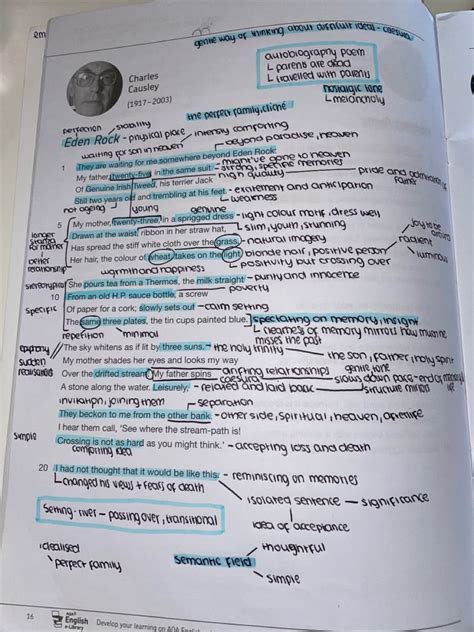 gentle way of thinking about difficult ideal - caesura
autobiography poem
↳ parents are dead
↳ travelled with parents
nostalgic tone
↳ melancholy
Charles
Causley
(1917–2003)
the perfect family, cliché
perfection
stability
Eden Rock - physical place
intensly comforting
beyond paradise, heaven
waiting for son in heaven
1 They are waiting for me somewhere beyond Eden Rock:
might've gone to heaven
My father, twenty-five, in the same suit - strong, specific memories
Of Genuine Irish Tweed, his terrier Jack
high quality
pride and admiration
father
Still two years old and trembling at his feet. - excitement and anticipation
↳ weakness
not ageing
young
genuine
5 My mother, twenty-three, in a sprigged dress - light colour motif, dress well
Drawn at the waist, ribbon in her straw hat, slim, youth, stunning
Has spread the stiff white cloth over the grass. - natural imagery
Her hair, the colour of wheat, takes on the light. blonde hair, positive person
↳ positivity pur crossing over
joy to be around
radiant
luminous
longer
better
relationship
warmth and happiness
stereotypical
She pours tea from a Thermos, the milk straight - purity and innocence
10 From an old H.P. sauce bottle, a screw
poverty
specific
Of paper for a cork; slowly sets out - calm setting
The same three plates, the tin cups painted blue.
speculating on memory, insight
repetition
minimal
misses the past
The sky whitens as if lit by three suns. - the holy trinity
the son, father, holy spirit
My mother shades her eyes and looks my way
epiphany
sudden
realisation
Over the drifted stream. My father spins
drifting relationship
caesura
gentle tone
slows down pace - end of memory
A stone along the water. Leisurely, - relaxed and laid back
structure mirrors life
invitation, joining them
separation
They beckon to me from the other bank. - other side, spiritual, heaven, afterlife
I hear them call, 'See where the stream-path is!
simple
Crossing is not as hard as you might think.' - accepting loss and death
comforting idea
20 I had not thought that it would be like this. - reminiscing on memories
↳ changed his views + fears of death
isolated sentence - significance
idea of acceptance
Setting - river - passing over, transitional
idealised
perfect family
semantic field
thoughtful
simple
16
AQA
English
e-Library
Develop your learning on AQA